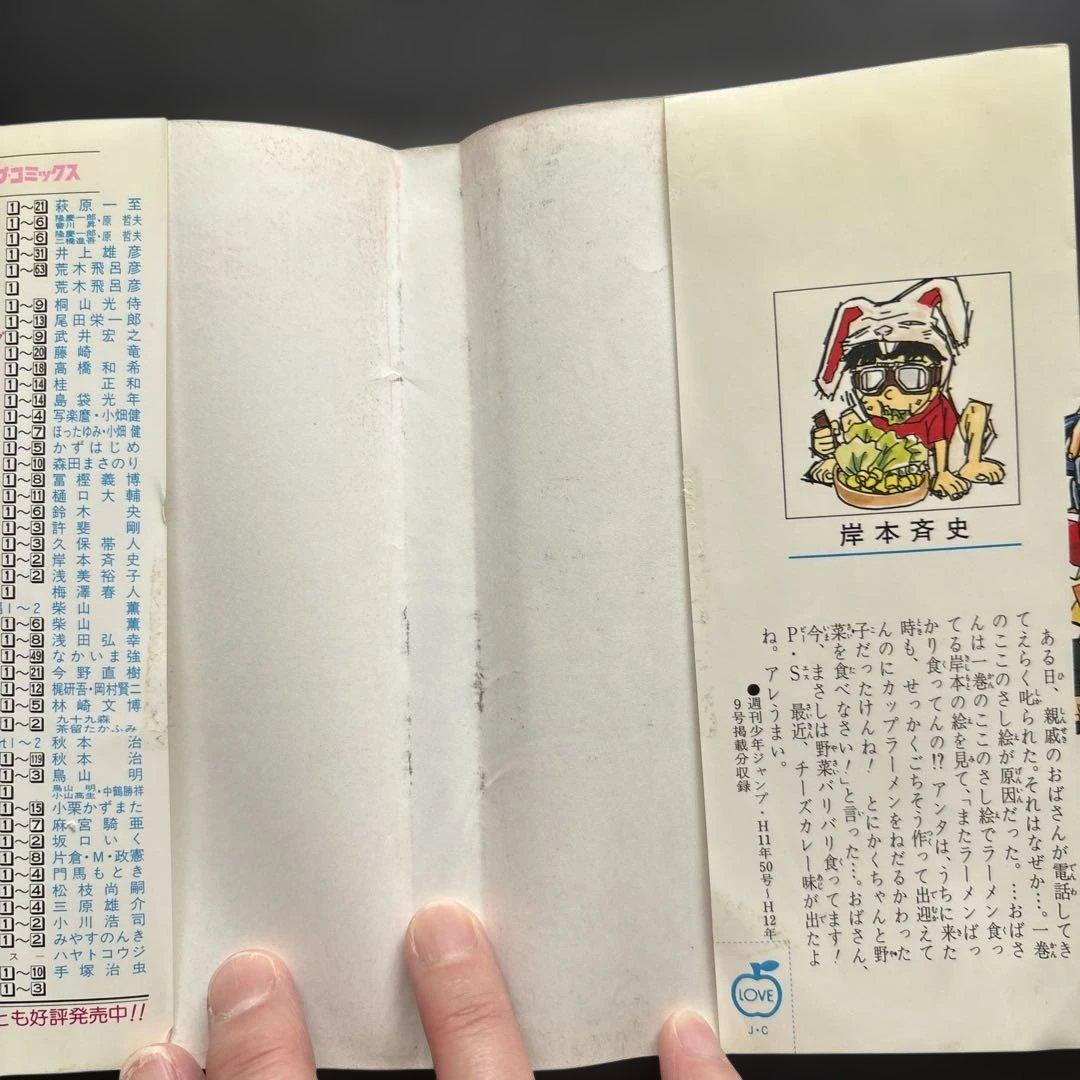 プ・コミックス
1〜21 萩原一至
1〜6 隆慶一郎・原 哲夫
1〜6 隆慶一郎・原 哲夫
1〜31 井上雄彦
1〜63 荒木飛呂彦
1 荒木飛呂彦
1〜9 桐山光侍
1〜13 尾田栄一郎
1〜9 武井宏之
1〜20 藤崎 竜
1〜18 高橋和希
1〜14 桂 正和
1〜14 島袋光年
1〜4 写楽麿・小畑健
1〜7 ほったゆみ・小畑 健
1〜5 かずはじめ
1〜10 森田まさのり
1〜8 冨樫義博
1〜11 樋口大輔
1〜6 鈴木 央
1〜3 許斐 剛
1〜3 久保帯人
1〜2 岸本斉史
1〜2 浅美裕子
1 梅澤春人
1〜2 柴山 薫
1〜6 柴山 薫
1〜8 浅田弘幸
1〜49 なかいま強
1〜21 今野直樹
1〜12 梶研吾・岡村賢二
1〜5 林崎文博
1〜2 九十九森
茶留たかふみ
1〜2 秋本 治
1〜119 秋本 治
1〜3 鳥山 明
1 鳥山 明・中鶴勝祥
小山高生
1〜15 小栗かずまた
1〜7 麻宮騎亜
1〜2 坂口いく
1〜8 片倉・M・政憲
1〜4 門馬もとき
1〜4 松枝尚嗣
1〜4 三原雄介
1〜2 小川浩司
1〜2 みやすのんき
ハヤトコウジ
1〜10 手塚治虫
1〜3
とも好評発売中!!
岸本斉史
ある日、親戚のおばさんが電話してき
てえらく叱られた。それはなぜか…。一巻
のここのさし絵が原因だった。…おばさ
んは一巻のここのさし絵でラーメン食っ
てる岸本の絵を見て、「またラーメンばっ
かり食ってんの!? アンタは、うちに来た
時も、せっかくごちそう作って出迎えて
んのにカップラーメンをねだるかわった
子だったけんね! とにかくちゃんと野
菜を食べなさい!」と言った…。おばさん、
今、まさしは野菜バリバリ食ってます!
P・S 最近、チーズカレー味が出たよ
ね。アレうまい。
●週刊少年ジャンプ・H11年50号〜H12年
9号掲載分収録
LOVE
J・C